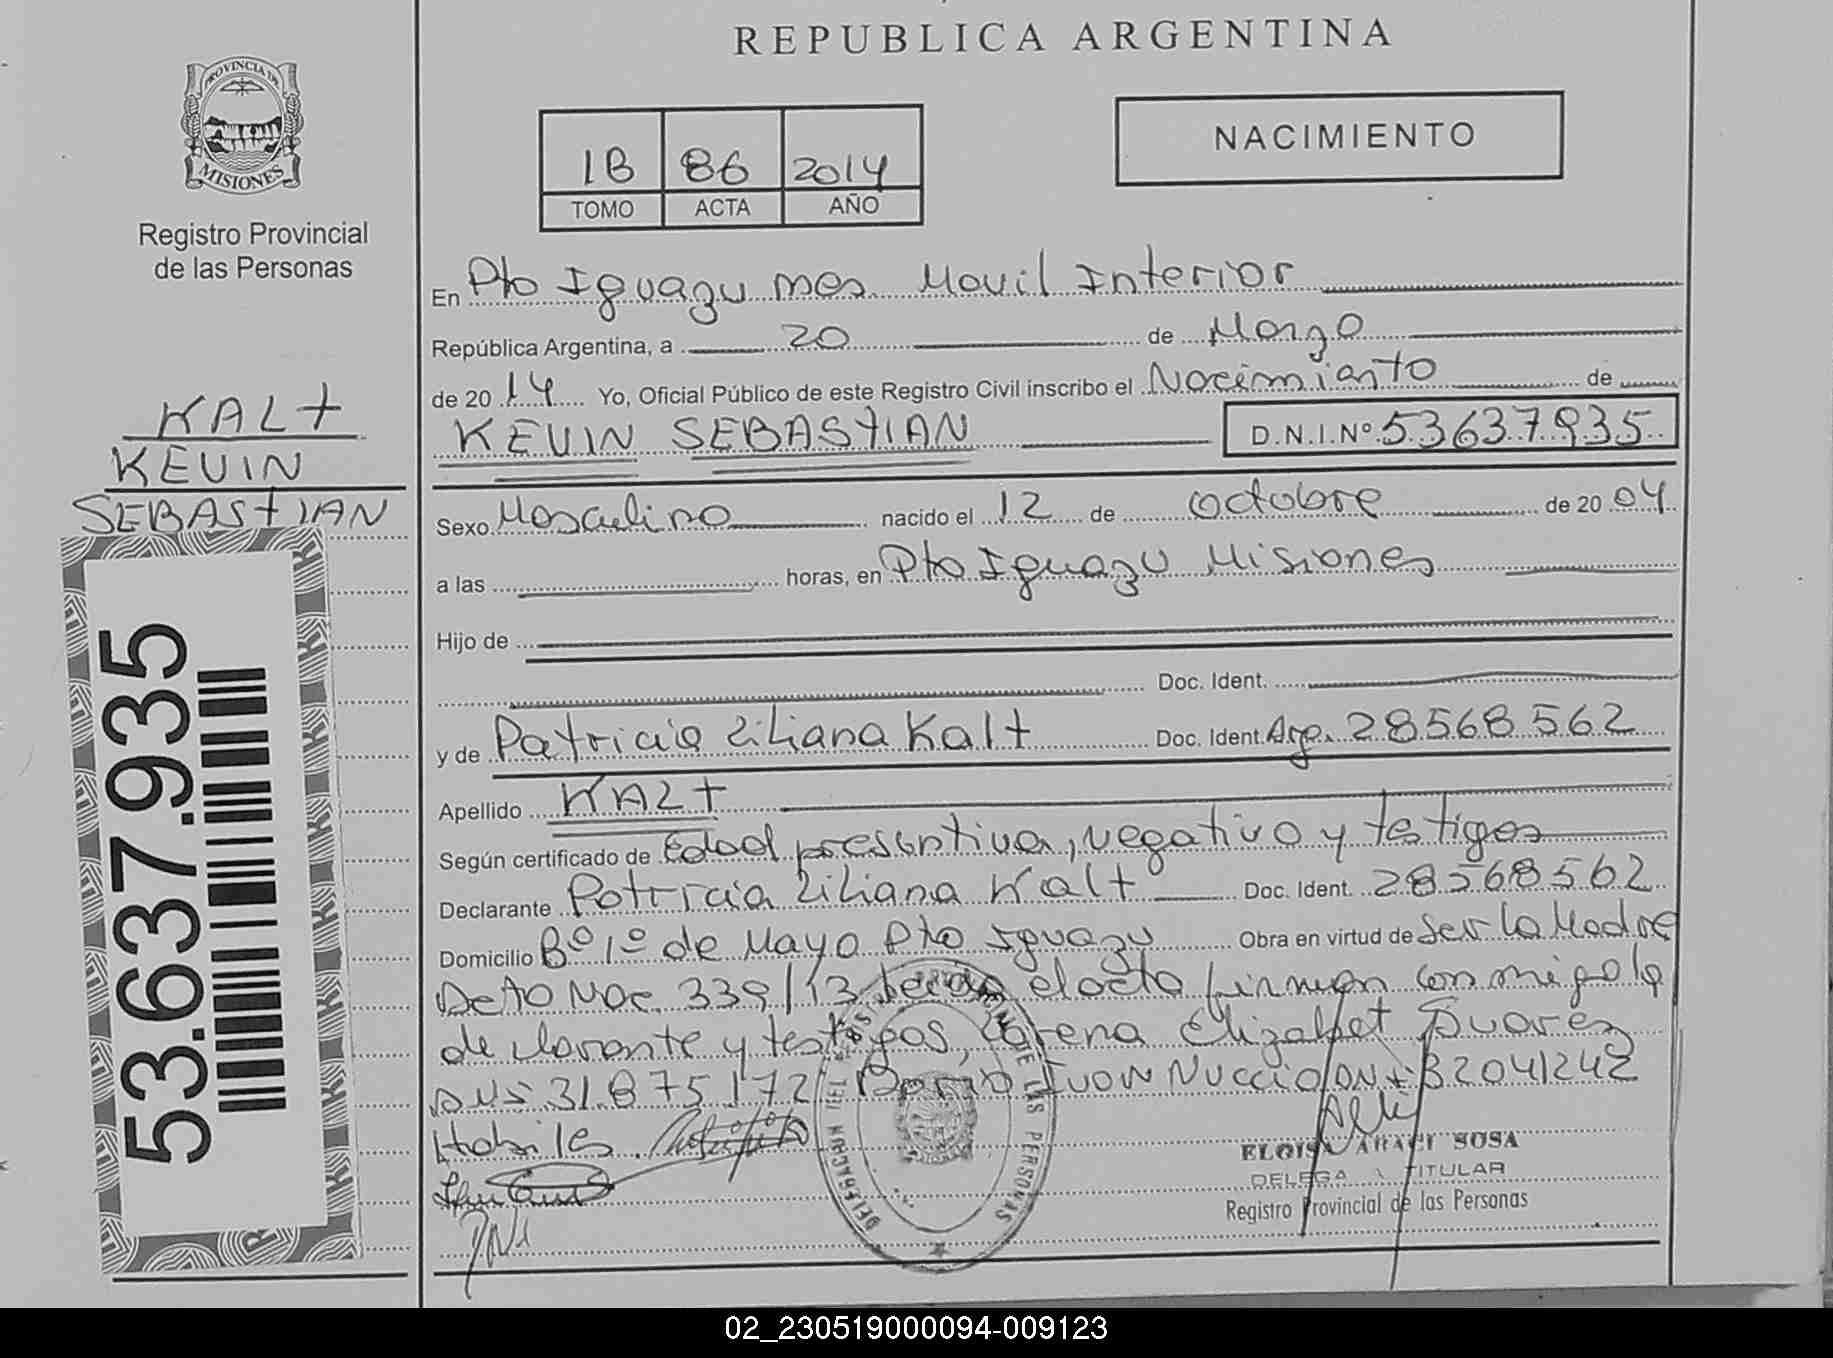 REPUBLICA ARGENTINA
PROVINCIA DE
MISIONES
Registro Provincial
de las Personas
1B 86 2014
TOMO ACTA AÑO
NACIMIENTO
KALt
KEVIN
SEBAStIAN
53.637.935
En Pto Iguazu mns. Movil Interior
República Argentina, a 20 de Marzo
de 2014 Yo, Oficial Público de este Registro Civil inscribo el Nacimianto de
KEVIN SEBAStIAN D.N.I.Nº 53637935
Sexo Masculino nacido el 12 de octubre de 2004
a las horas, en Pto Iguazu Misiones
Hijo de
Doc. Ident.
y de Patricia Liliana Kalt Doc. Ident. Arg. 28568562
Apellido KALt
Según certificado de Edad presentiva, negativo y testigos
Declarante Patricia Liliana Kalt Doc. Ident. 28568562
Domicilio Bº 1º de Mayo Pto Iguazu Obra en virtud de Ser la Madre
Dcto Nac. 339/13 Leida el acta firman conmigo la
declarante y testigos, Lorena Elizabet Suarez
DNI 31.875.172 Ivan Nuccio DNI 32041242
Habiles
DE LAS PERSONAS
ELOISA ARACI SOSA
DELEGA TITULAR
Registro Provincial de las Personas
02_230519000094-009123